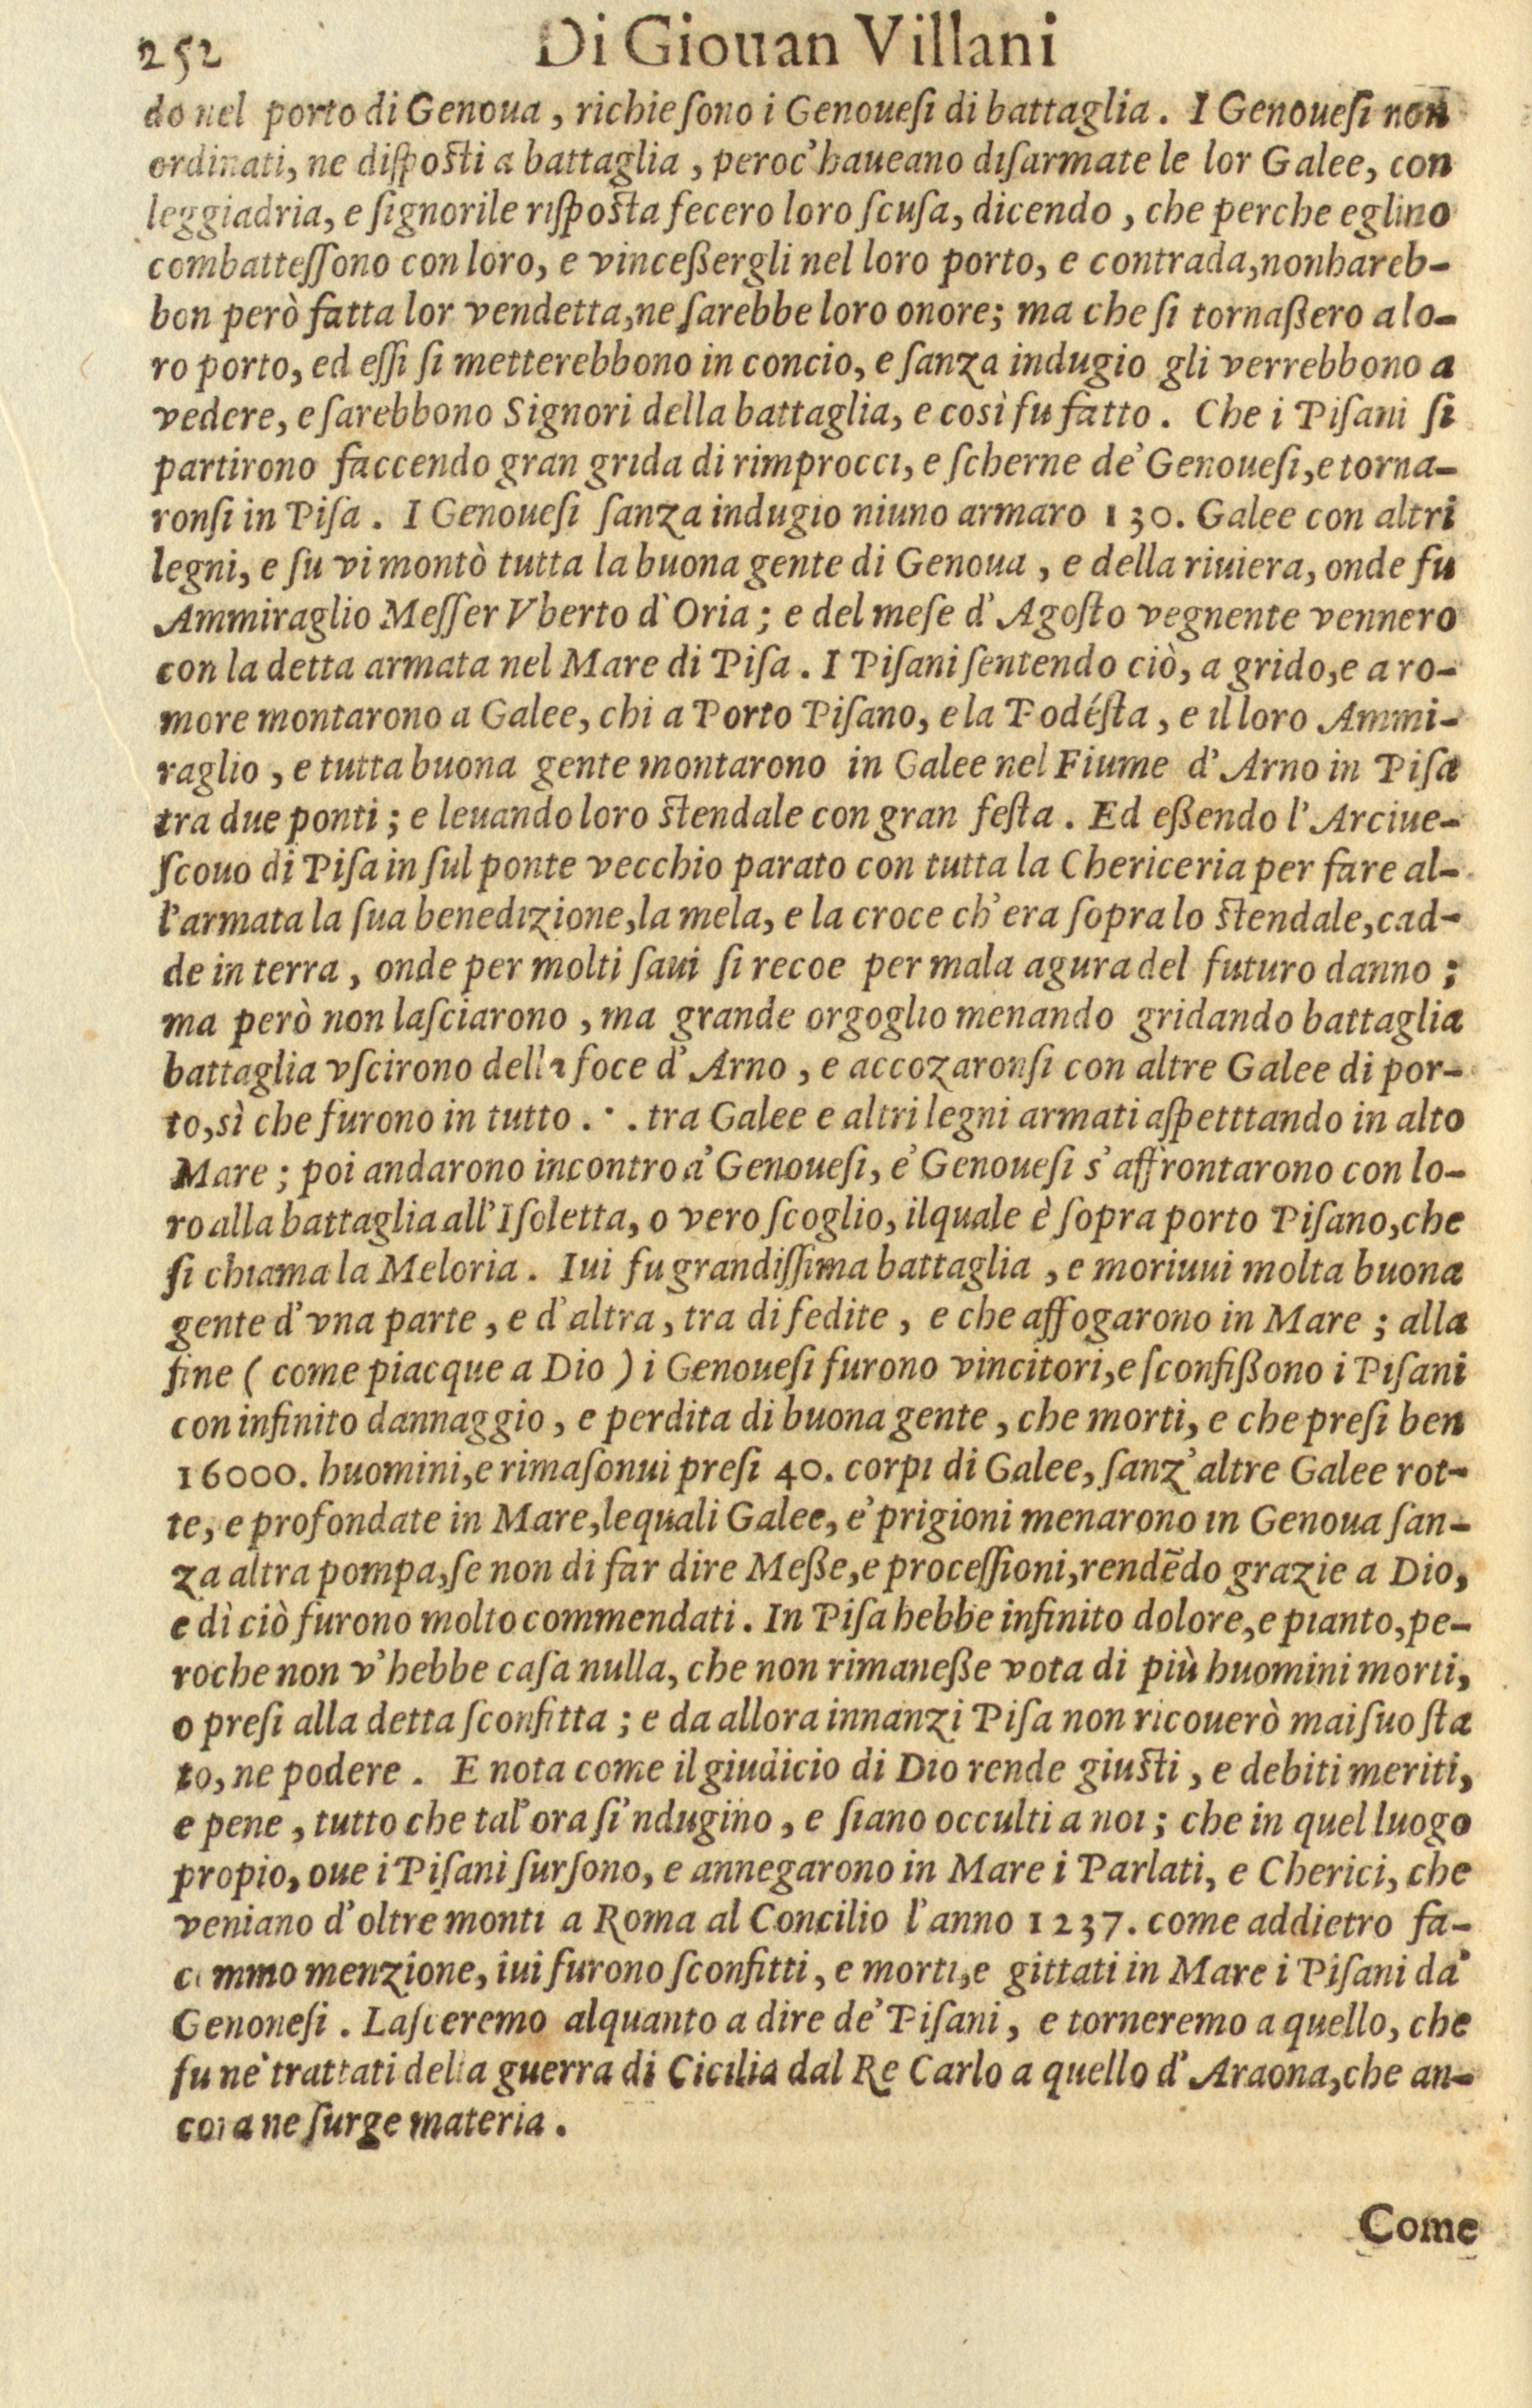 252 Di Giouan Villani
do nel porto di Genoua, richieſono i Genoueſi di battaglia. I Genoueſi non
ordinati, ne diſpoſti a battaglia, peroc'haueano diſarmate le lor Galee, con
leggiadria, e ſignorile riſpoſta fecero loro ſcuſa, dicendo, che perche eglino
combatteſſono con loro, e vinceßergli nel loro porto, e contrada, non hareb-
bon però fatta lor vendetta, ne ſarebbe loro onore; ma che ſi tornaßero a lo-
ro porto, ed eſſi ſi metterebbono in concio, e ſanza indugio gli verrebbono a
vedere, e ſarebbono Signori della battaglia, e così fu fatto. Che i Piſani ſi
partirono faccendo gran grida di rimprocci, e ſcherne de' Genoueſi, e torna-
ronſi in Piſa. I Genoueſi ſanza indugio niuno armaro 130. Galee con altri
legni, e ſu vi montò tutta la buona gente di Genoua, e della riuiera, onde fu
Ammiraglio Meſſer Vberto d'Oria; e del meſe d'Agoſto vegnente vennero
con la detta armata nel Mare di Piſa. I Piſani ſentendo ciò, a grido, e a ro-
more montarono a Galee, chi a Porto Piſano, e la Podéſta, e il loro Ammi-
raglio, e tutta buona gente montarono in Galee nel Fiume d'Arno in Piſa
tra due ponti; e leuando loro ſtendale con gran feſta. Ed eßendo l'Arciue-
ſcouo di Piſa in ſul ponte vecchio parato con tutta la Chericeria per fare al-
l'armata la ſua benedizione, la mela, e la croce ch'era ſopra lo ſtendale, cad-
de in terra, onde per molti ſaui ſi recoe per mala agura del futuro danno;
ma però non laſciarono, ma grande orgoglio menando gridando battaglia
battaglia vſcirono della foce d'Arno, e accozaronſi con altre Galee di por-
to, sì che furono in tutto . · . tra Galee e altri legni armati aſpetttando in alto
Mare; poi andarono incontro a' Genoueſi, e' Genoueſi s'affrontarono con lo-
ro alla battaglia all'Iſoletta, o vero ſcoglio, ilquale è ſopra porto Piſano, che
ſi chiama la Meloria. Iui fu grandiſſima battaglia, e moriuui molta buona
gente d'vna parte, e d'altra, tra di fedite, e che affogarono in Mare; alla
fine (come piacque a Dio) i Genoueſi furono vincitori, e ſconfißono i Piſani
con infinito dannaggio, e perdita di buona gente, che morti, e che preſi ben
16000. huomini, e rimaſonui preſi 40. corpi di Galee, ſanz'altre Galee rot-
te, e profondate in Mare, lequali Galee, e' prigioni menarono in Genoua ſan-
za altra pompa, ſe non di far dire Meße, e proceſſioni, rendẽdo grazie a Dio,
e dì ciò furono molto commendati. In Piſa hebbe infinito dolore, e pianto, pe-
roche non v'hebbe caſa nulla, che non rimaneße vota di più huomini morti,
o preſi alla detta ſconfitta; e da allora innanzi Piſa non ricouerò mai ſuo ſta
to, ne podere. E nota come il giudicio di Dio rende giuſti, e debiti meriti,
e pene, tutto che tal'ora ſi'ndugino, e ſiano occulti a noi; che in quel luogo
propio, oue i Piſani ſurſono, e annegarono in Mare i Parlati, e Cherici, che
veniano d'oltre monti a Roma al Concilio l'anno 1237. come addietro fa-
cemmo menzione, iui furono ſconfitti, e morti, e gittati in Mare i Piſani da'
Genoneſi. Laſceremo alquanto a dire de' Piſani, e torneremo a quello, che
fu ne' trattati della guerra di Cicilia dal Re Carlo a quello d'Araona, che an-
cora ne ſurge materia.
Come